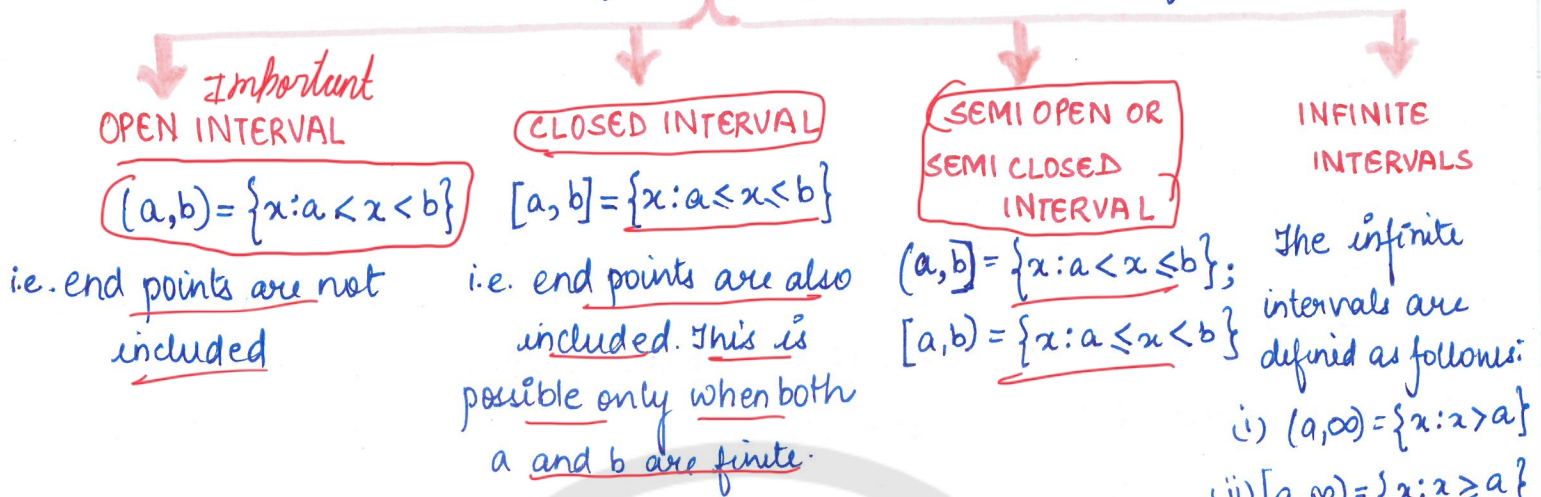 Important
OPEN INTERVAL
(a,b)={x:a<x<b}
i.e. end points are not
included
CLOSED INTERVAL
[a,b]={x:a≤x≤b}
i.e. end points are also
included. This is
possible only when both
a and b are finite.
SEMI OPEN OR
SEMI CLOSED
INTERVAL
(a,b]={x:a<x≤b};
[a,b)={x:a≤x<b}
INFINITE
INTERVALS
The infinite
intervals are
defined as follows:
(i) (a,∞)={x:x>a}
(ii) [a,∞)={x:x≥a}